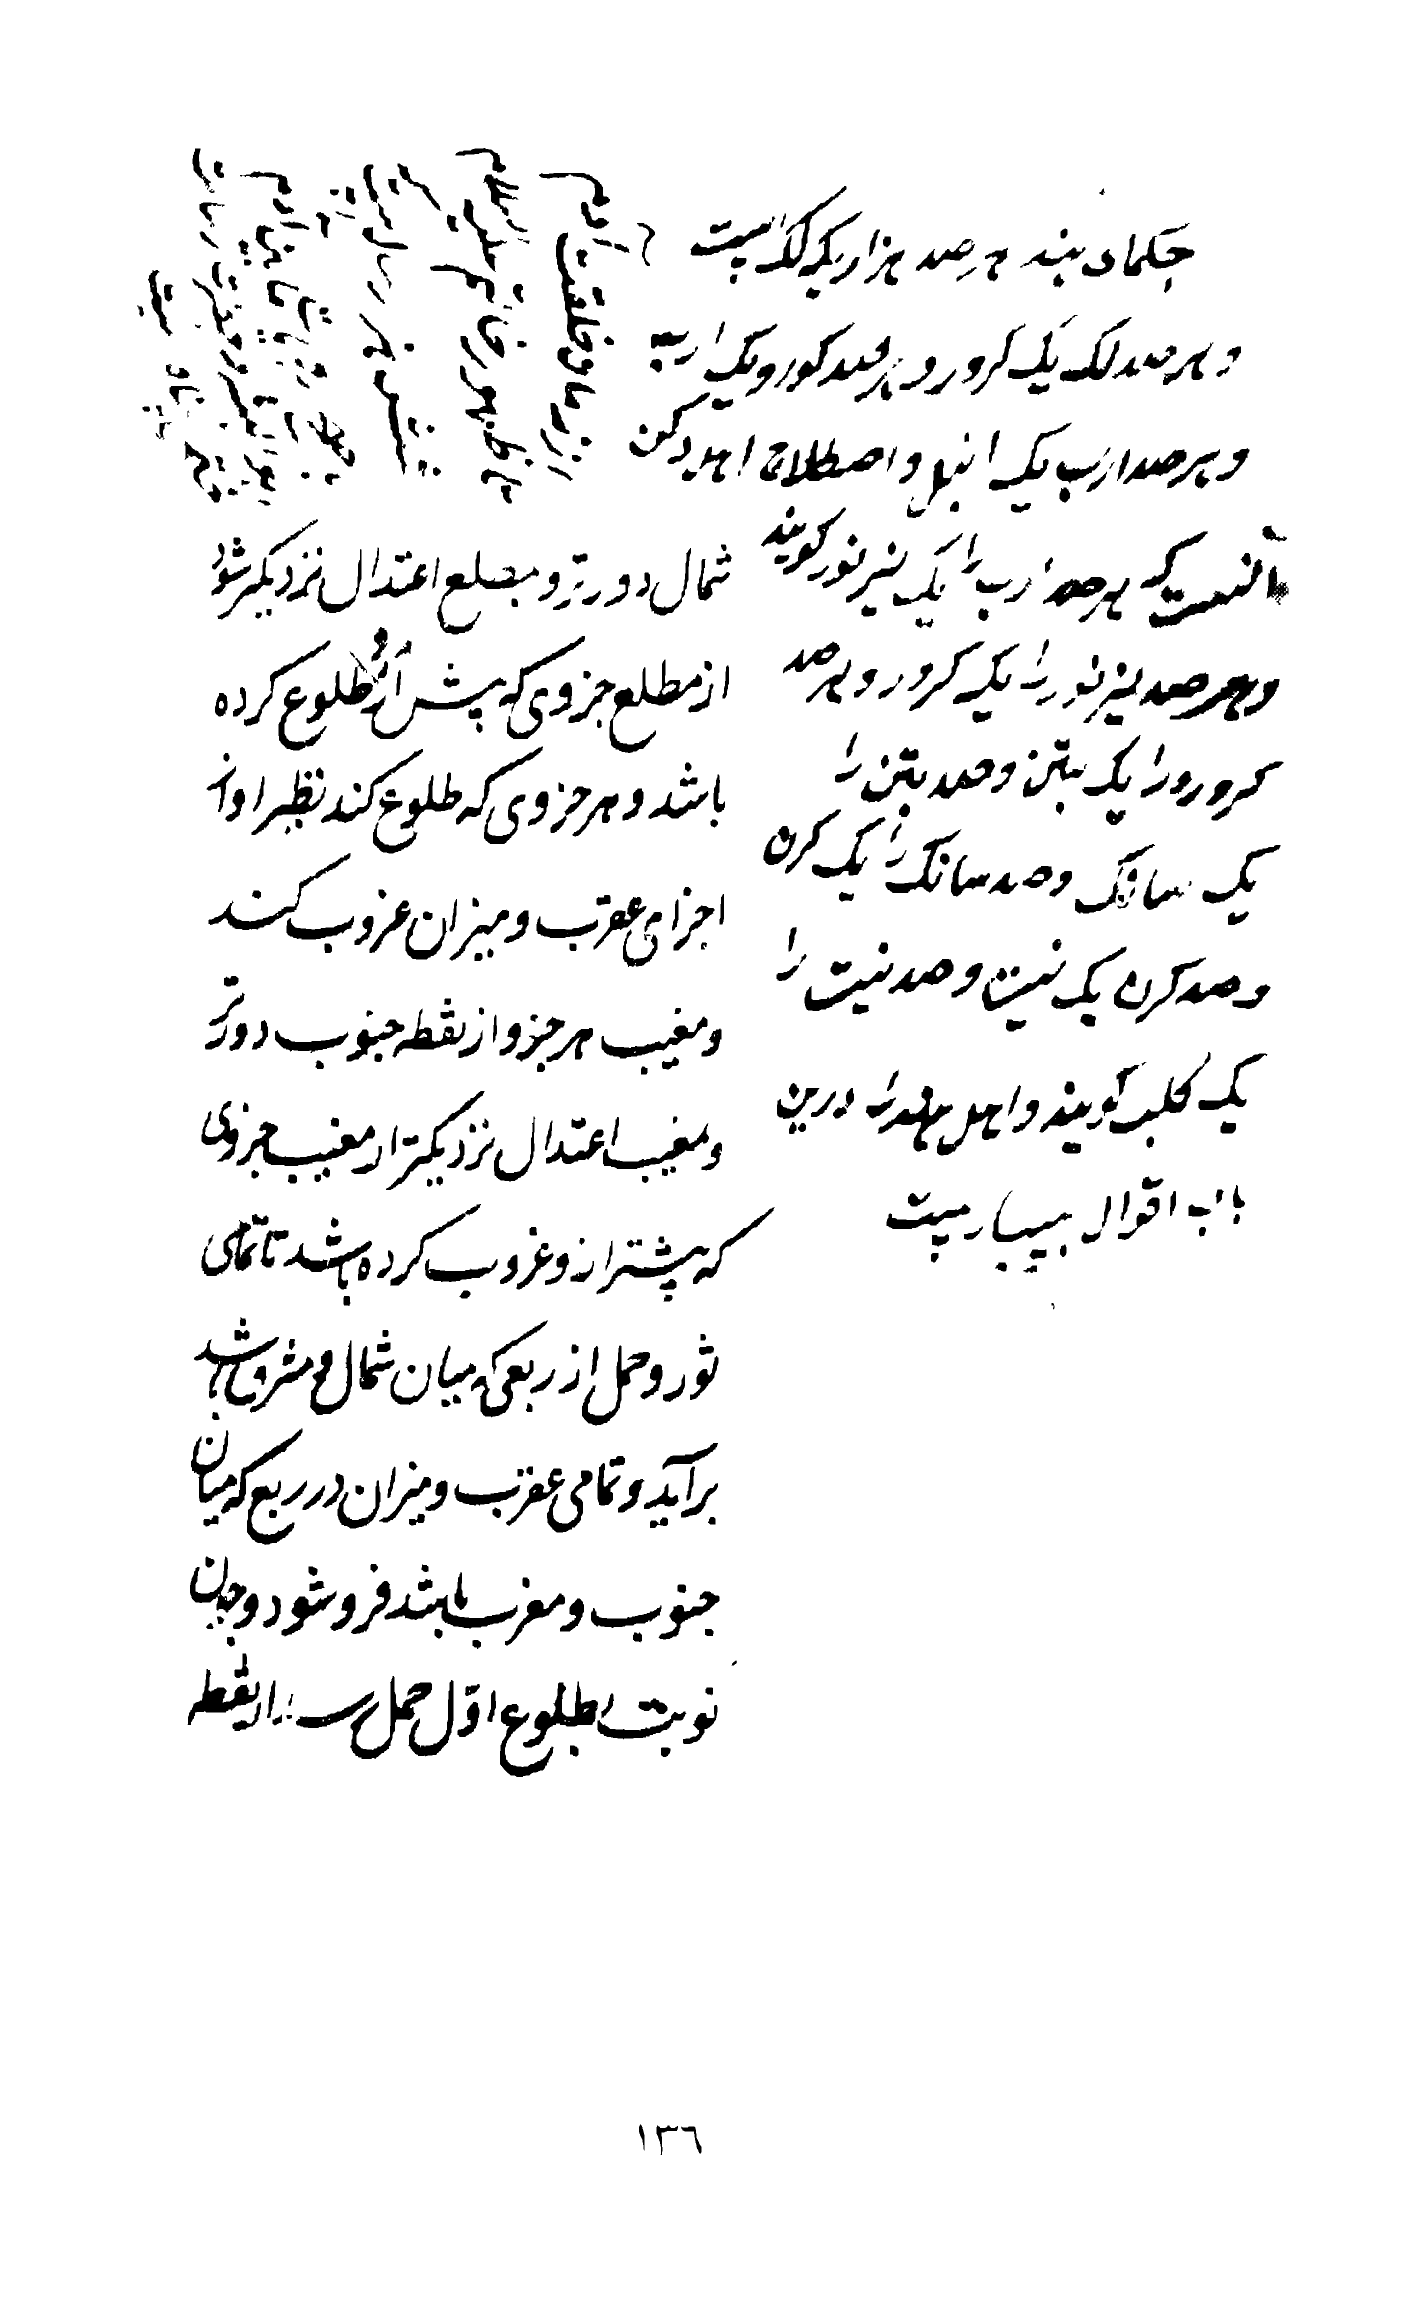 حکمای هند هر صد هزار یک لک است
و هر صد لک یک کرور و هر صد کرور یک ارب
و هر صد ارب یک انیل و اصطلاح اهل دکن
آنست که هر صد ارب را یک نیرنور کویند
و هر صد نیرنور را یک کرور و هر صد
کرور را یک بتن و صد بتن را
یک سانک و صد سانک را یک کرن
و صد کرن یک نیت و صد نیت را
یک کلب کویند و اهل هند را درین
باب اقوال بسیارست
از زمان خلقت آدم
تا ظهور خاتم علیه السلام
شمال دورتر و بمطلع اعتدال نزدیکتر شود
از مطلع جزوی که پیش از و طلوع کرده
باشد و هر جزوی که طلوع کند نظیر او از
اجزای عقرب و میزان غروب کند
و مغیب هر جزو از نقطه جنوب دورتر
و بمغیب اعتدال نزدیکتر از مغیب جزوی
که پیشتر از و غروب کرده باشد تا تمامی
ثور و حمل از ربعی که میان شمال و مشرق باشد
برآید و تمامی عقرب و میزان در ربع که میان
جنوب و مغرب باشد فرو شود و چون
نوبت بطلوع اول حمل رسد از نقطه
١٣٦